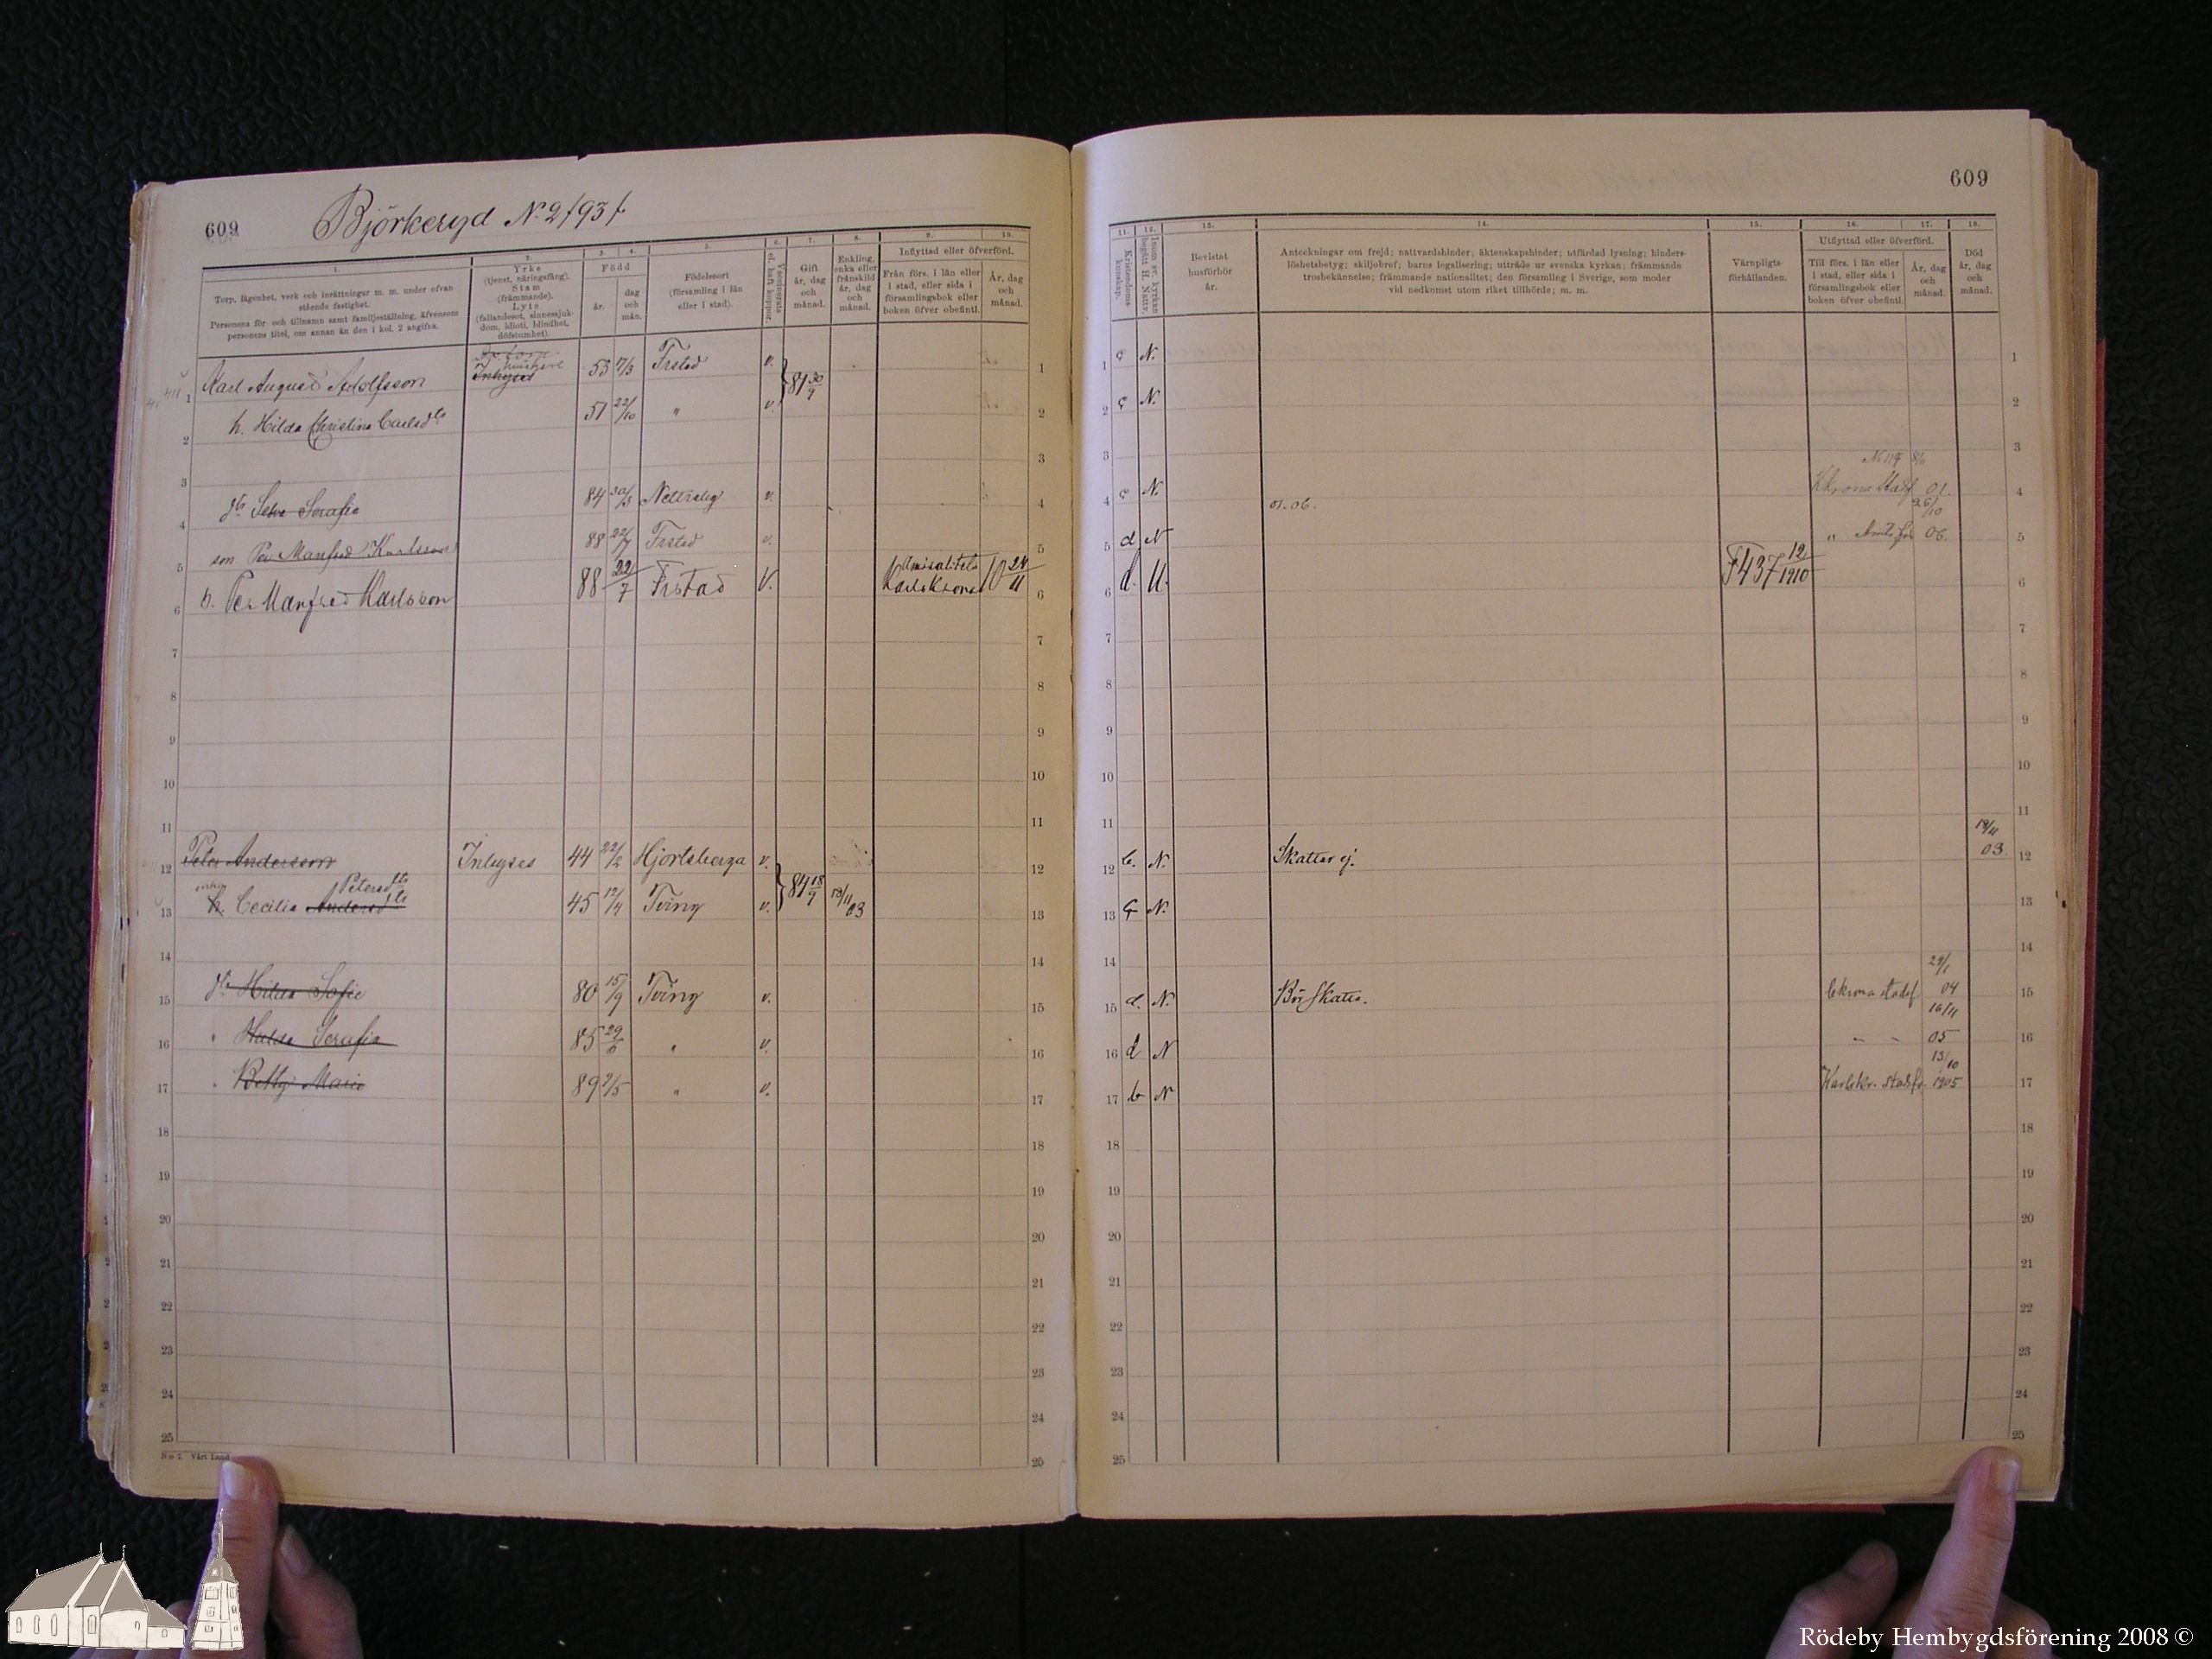 609
Björkeryd N:2
1.
Torp, lägenhet, verk och inrättningar m. m. under ofvan
stående fastighet.
Personens för- och tillnamn samt familjeställning, äfvensom
personens titel, om annan än den i kol. 2 angifna.
2.
Yrke
(tjenst, näringsfång).
Stam
(främmande).
Lyte
(fallandesot, sinnessjuk-
dom, idioti, blindhet,
döfstumhet).
3. 4.
Född
år.
dag
och
mån.
5.
Födelseort
(församling i län
eller i stad).
6.
Vaccinerats
el. haft koppor.
7.
Gift
år, dag
och
månad.
8.
Enkling,
enka eller
frånskild
år, dag
och
månad.
9. 10.
Inflyttad eller öfverförd.
Från förs. i län eller
i stad, eller sida i
församlingsbok eller
boken öfver obefintl.
År, dag
och
månad.
1 Karl August Adolfsson Inhyses 53 17/3 Frstad v. 81 30/9 1
2 h. Hilda Christina Carlsdtr 51 22/10 " v. 2
3 3
4 dtr Selva Serafia 84 30/3 Nettraby v. 4
5 son Per Manfred Karlsson 88 22/7 Frstad v. 5
6 b. Per Manfred Karlsson 88 22/7 Frstad V. Amiralitets Karlskrona 10 24/11 6
7 7
8 8
9 9
10 10
11 11
12 Peter Andersson Inhyses 44 22/2 Hjortsberga v. 12
13 enkan h. Cecilia Andersdtr Petersdtr 45 12/4 Tving v. 81 18/9 18/11 03 13
14 14
15 dtr Hilda Sofie 80 15/9 Tving v. 15
16 " Hulda Serafia 85 29/6 " v. 16
17 " Betty Maria 89 2/5 " v. 17
18 18
19 19
20 20
21 21
22 22
23 23
24 24
25 25
N:o 2. Vårt Land
609
11.
Kristendoms-
kunskap.
12.
Inom sv. kyrkan
begått H. Nattv.
13.
Bevistat
husförhör
år.
14.
Anteckningar om frejd; nattvardshinder; äktenskapshinder; utfärdad lysning; hinders-
löshetsbetyg; skiljobref; barns legalisering; utträde ur svenska kyrkan; främmande
trosbekännelse; främmande nationalitet; den församling i Sverige, som moder
vid nedkomst utom riket tillhörde; m. m.
15.
Värnpligts-
förhållanden.
16. 17.
Utflyttad eller öfverförd.
Till förs. i län eller
i stad, eller sida i
församlingsbok eller
boken öfver obefintl.
År, dag
och
månad.
18.
Död
år, dag
och
månad.
1 N. 1
2 N. 2
3 3
4 N. 01.06. Kkrona Stadsf 01. 4
5 d N " Amts för 26/10 06. 5
6 d. U. F 437 12/1910 6
7 7
8 8
9 9
10 10
11 11
12 b. N. Skattar ej. 18/11 03. 12
13 N. 13
14 14
15 d. N. Bör skatta. Ckrona stadsf. 29/1 04 15
16 d N " " 16/11 05 16
17 b N Karlskr. stadsf. 13/10 1905 17
18 18
19 19
20 20
21 21
22 22
23 23
24 24
25 25
Rödeby Hembygdsförening 2008 ©